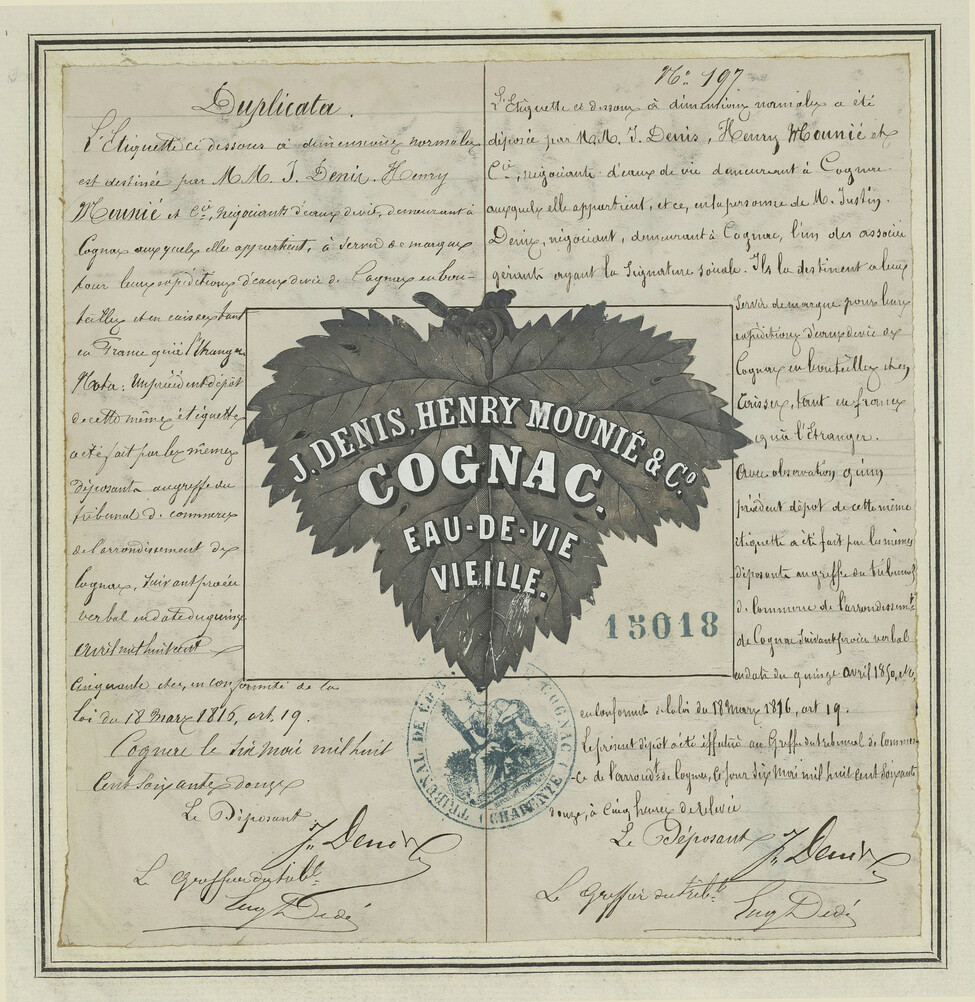 Duplicata.
L'Etiquette ci dessous à dimensions normales
est destinée par M M. J. Denis. Henry
Mounié et Cie, négociants d'eaux de vie, demeurant à
Cognac auxquels elle appartient, à servir de marque
pour leurs expéditions d'eaux de vie de Cognac en bou-
teilles et en caisses tant
en France qu'à l'étranger
Nota: Un précédent dépôt
de cette même étiquette
a été fait par les mêmes
déposants au greffe du
tribunal de commerce
de l'arrondissement de
Cognac, suivant procès
verbal en date du quinze
avril mil huit cent
cinquante, en conformité de la
loi du 18 Mars 1816, art. 19.
Cognac le six Mai mil huit
Cent soixante douze
Le Déposant
J. Denis
Le Greffier du trib.
Eug Dedé
No. 197
L'Etiquette ci dessous à dimensions normales a été
déposée par M.M. J. Denis, Henry Mounié et
Cie, négociants d'eaux de vie demeurant à Cognac
auxquels elle appartient, et ce, en la personne de M. Justin
Denis, négociant, demeurant à Cognac, l'un des associés
gérants ayant la signature sociale. Ils la destinent à leur
servir de marque pour leurs
expéditions d'eaux de vie de
Cognac en bouteilles et en
Caisses, tant en france
qu'à l'Etranger.
Avec observation qu'un
précédent dépôt de cette même
étiquette a été fait par les mêmes
déposants au greffe du tribunal
de Commerce de l'arrondissemt
de Cognac suivant procès verbal
en date du quinze avril 1850,
en conformité de la loi du 18 Mars 1816, art 19.
Le présent dépôt a été effectué au Greffe du tribunal de Commer-
ce de l'arrondt de Cognac, ce jour six Mai mil huit Cent soixante
douze, à cinq heures de relevée
Le Déposant
J. Denis
Le Greffier du tribl
Eug Dedé
J. DENIS, HENRY MOUNIÉ & Co
COGNAC.
EAU-DE-VIE
VIEILLE.
15018
TRIBUNAL DE COGNAC (CHARENTE)